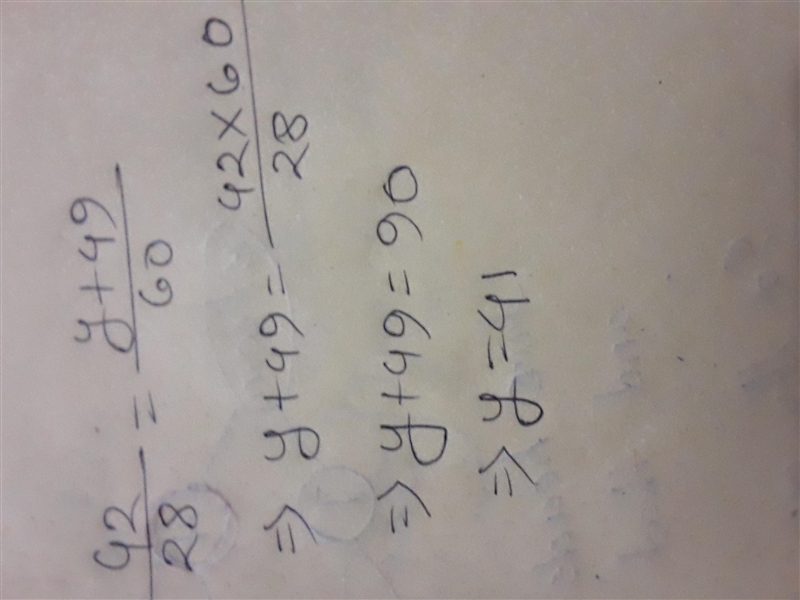 42/28 = y+49/60
⇒ y+49 = 42×60/28
⇒ y+49 = 90
⇒ y = 41